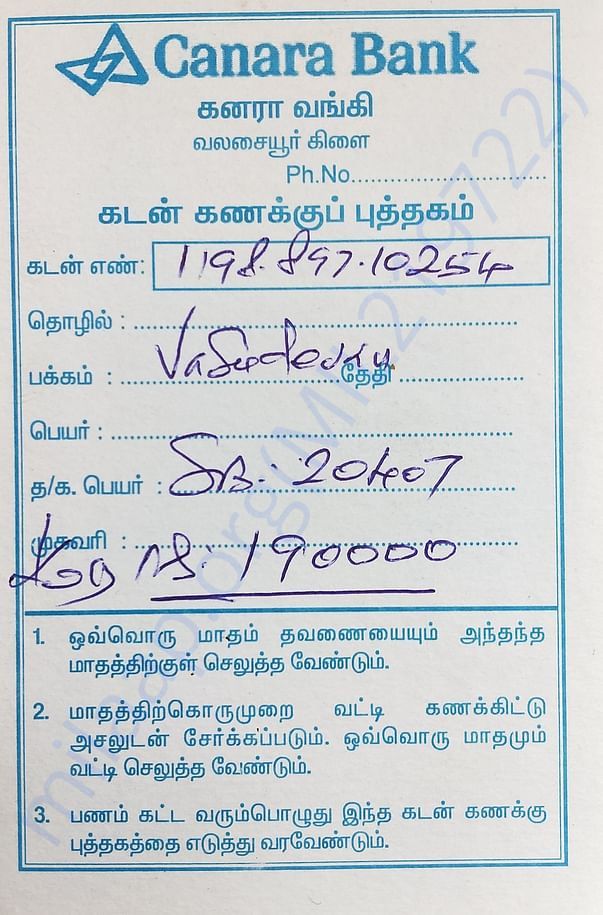 Canara Bank
கனரா வங்கி
வலசையூர் கிளை
Ph.No.
கடன் கணக்குப் புத்தகம்
கடன் எண்: 1198.897.10254
தொழில் :
Vasudevan
பக்கம் : தேதி
பெயர் :
த/க. பெயர் : SB. 20407
முகவரி : 190000
1. ஒவ்வொரு மாதம் தவணையையும் அந்தந்த
மாதத்திற்குள் செலுத்த வேண்டும்.
2. மாதத்திற்கொருமுறை வட்டி கணக்கிட்டு
அசலுடன் சேர்க்கப்படும். ஒவ்வொரு மாதமும்
வட்டி செலுத்த வேண்டும்.
3. பணம் கட்ட வரும்பொழுது இந்த கடன் கணக்கு
புத்தகத்தை எடுத்து வரவேண்டும்.